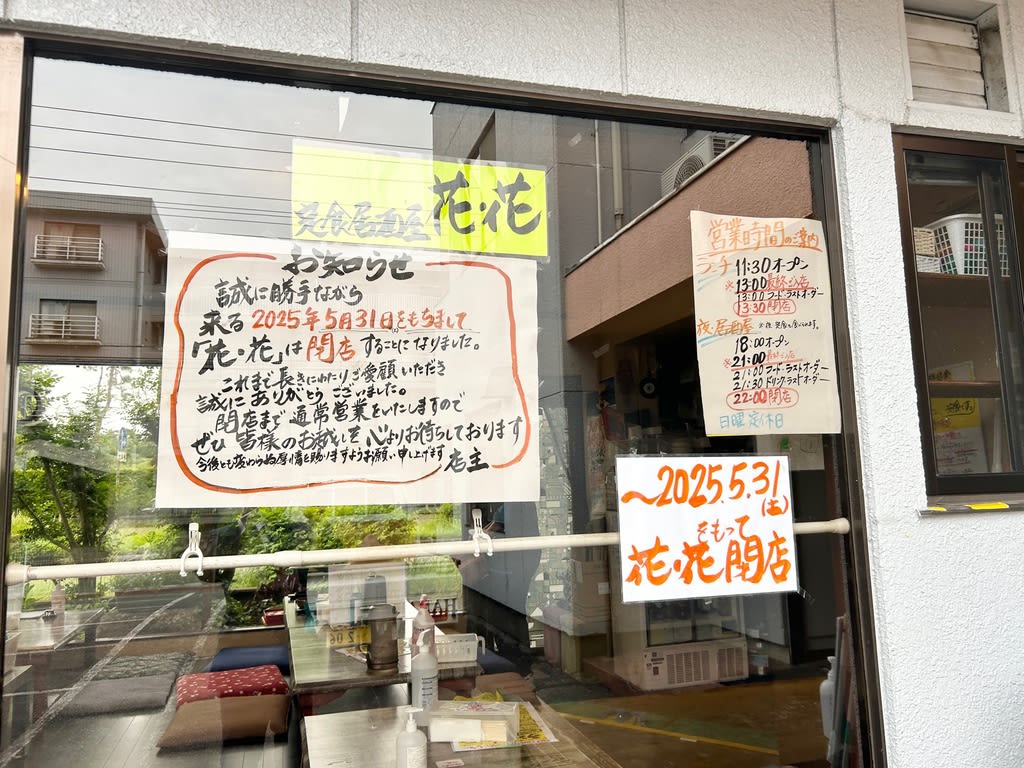 定食居酒屋 花・花
お知らせ
誠に勝手ながら
来る2025年5月31日(土)をもちまして
「花・花」は閉店することになりました。
これまで長きにわたりご愛顧いただき
誠にありがとうございました。
閉店まで通常営業をいたしますので
ぜひ皆様のお越しを心よりお待ちしております
今後とも変わらぬ厚情を賜りますようお願い申し上げます
店主
営業時間のご案内
ランチ 11:30オープン
※13:00最終入店
13:00フードラストオーダー
13:30閉店
夜居酒屋 ※夜、定食も食べられます。
18:00オープン
※21:00最終入店
21:00フードラストオーダー
21:30ドリンクラストオーダー
22:00閉店
日曜定休日
〜2025.5.31
(土)
をもって
花・花閉店